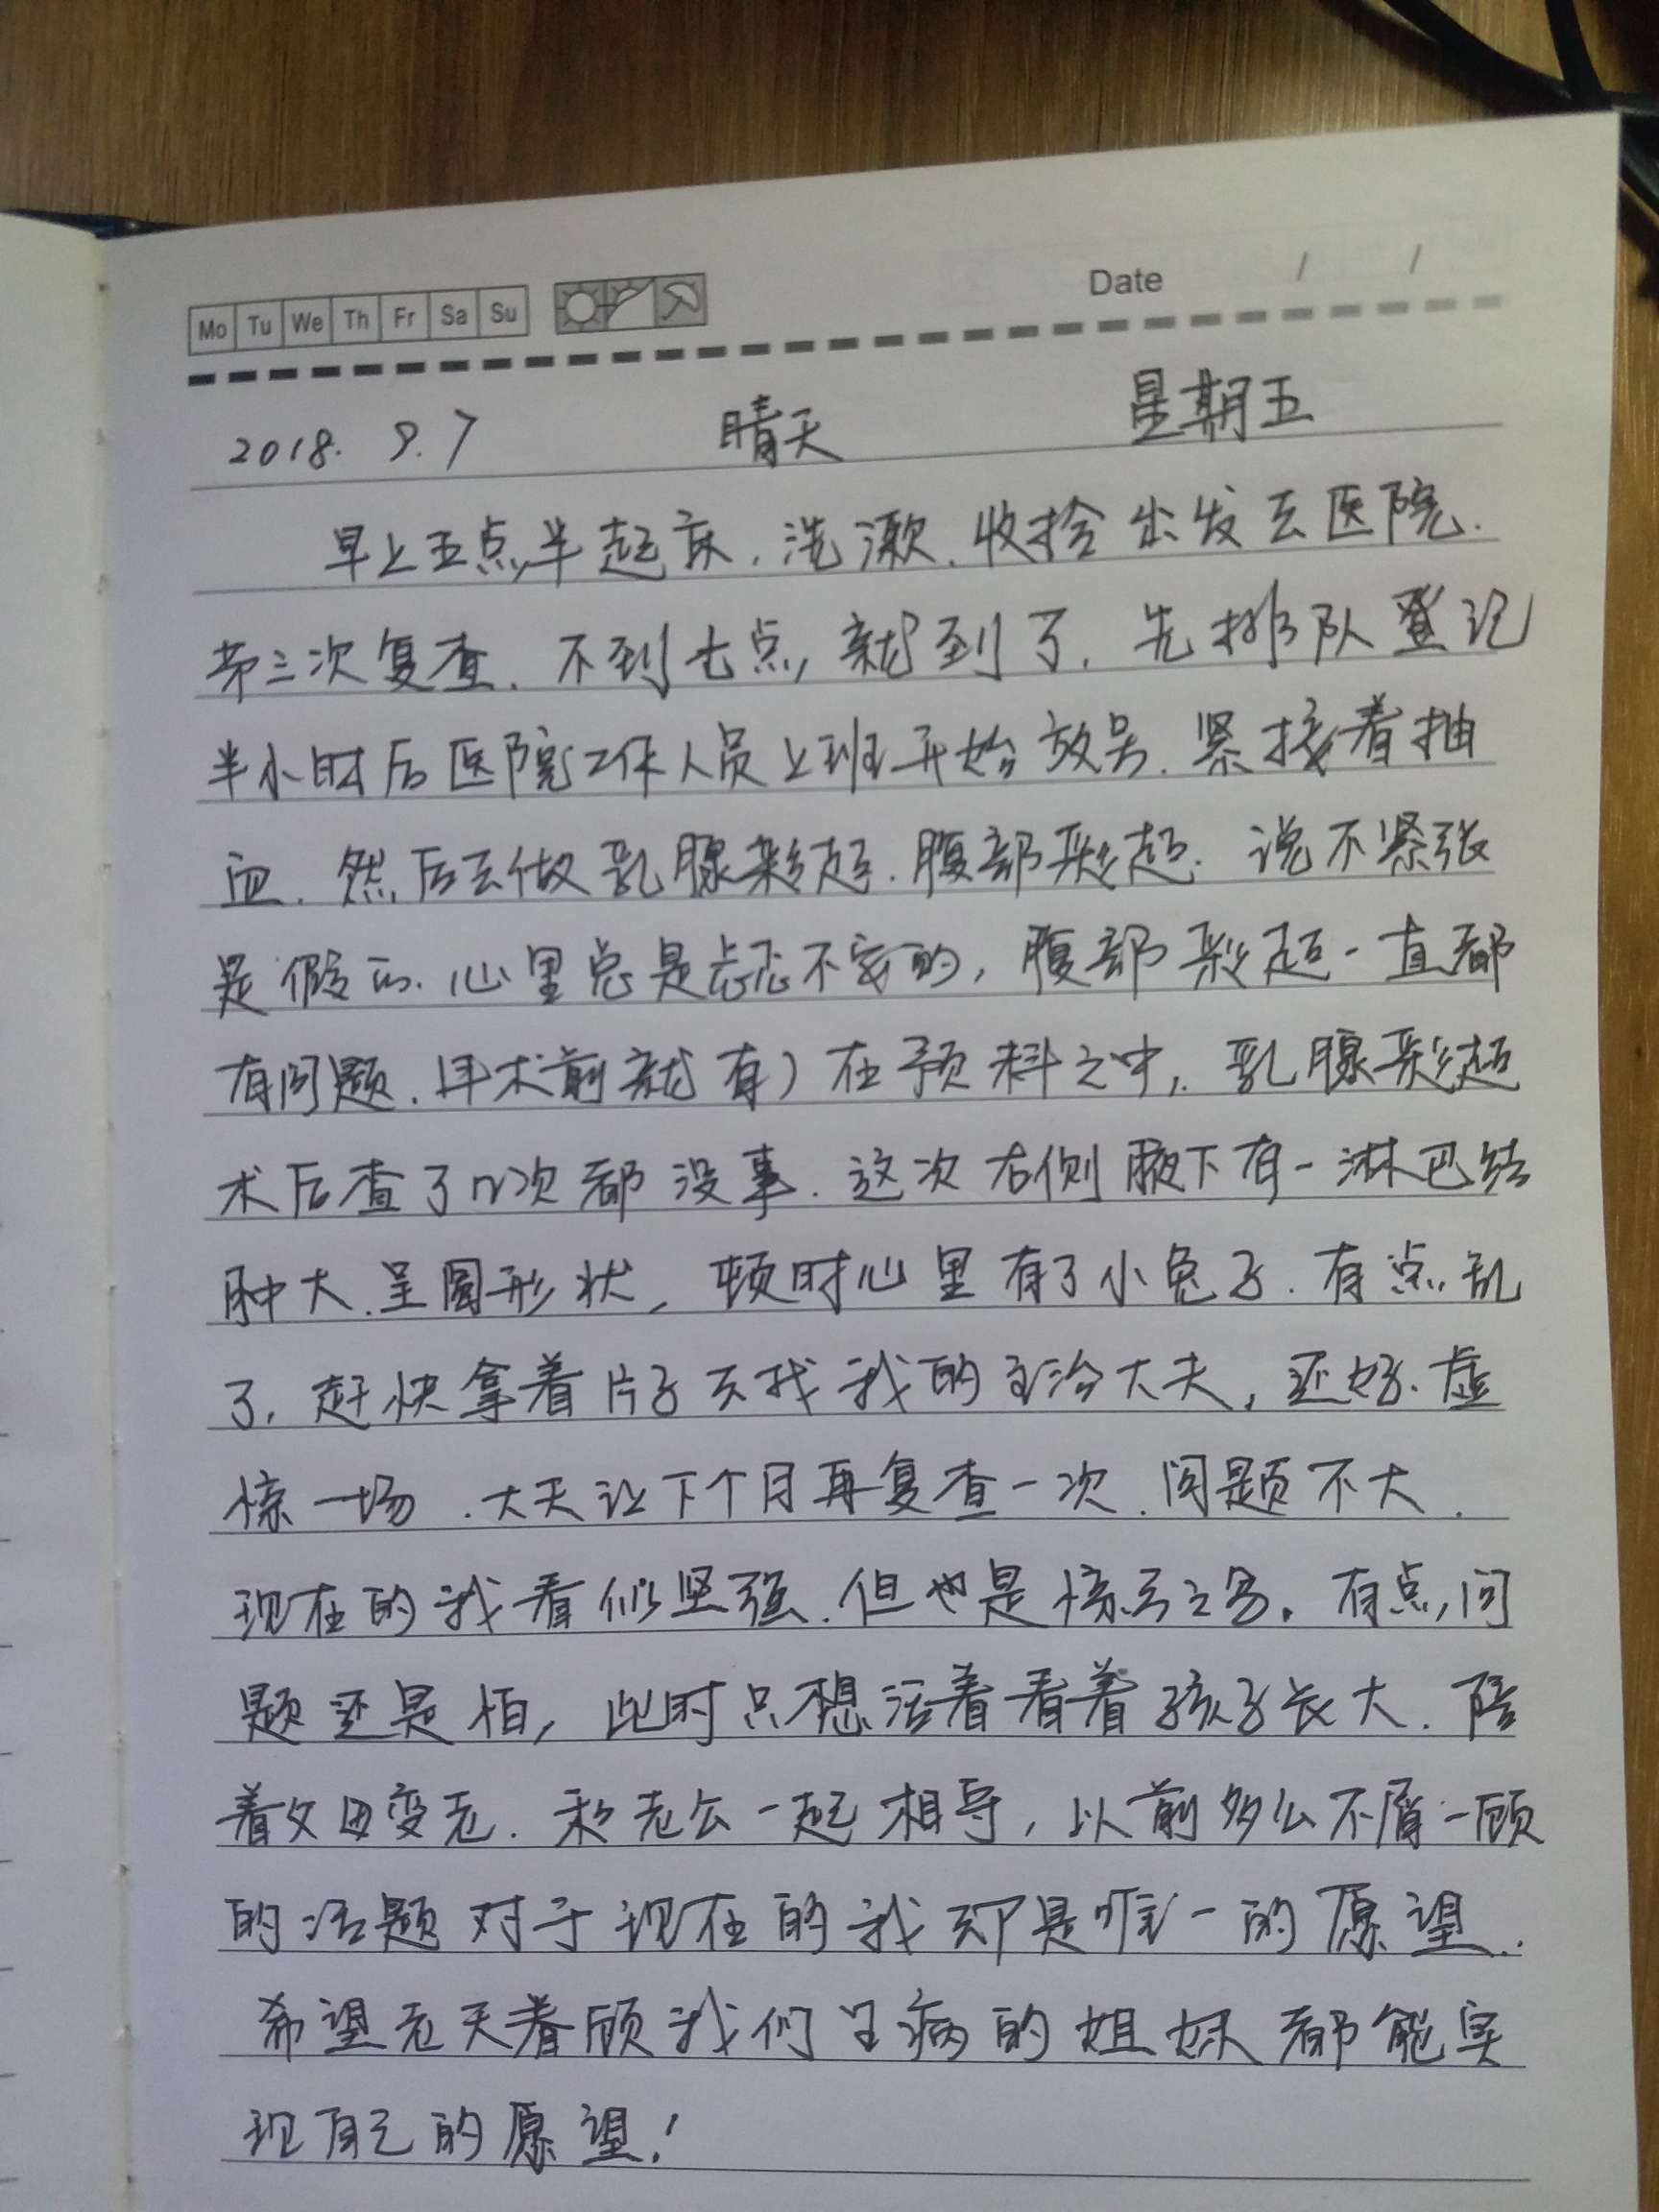 Mo Tu We Th Fr Sa Su Date / /
2018. 9.7 晴天 星期五
早上五点半起床.洗漱.收拾出发去医院.
第三次复查.不到七点,就到了.先排队登记
半小时后医院工作人员上班开始放号.紧接着抽
血.然后去做乳腺彩超.腹部彩超.说不紧张
是假的.心里总是忐忑不安的,腹部彩超一直都
有问题.(手术前就有)在预料之中,.乳腺彩超
术后查了n次都没事.这次右侧腋下有一淋巴结
肿大.呈圆形状,顿时心里有了小兔子.有点乱
了,赶快拿着片子去找我的主治大夫,还好.虚
惊一场.大夫让下个月再复查一次.问题不大.
现在的我看似坚强.但也是惊弓之鸟.有点问
题还是怕,此时只想活着看着孩子长大.陪
着父母变老.和老公一起相守,以前多么不屑一顾
的话题对于现在的我却是唯一的愿望..
希望老天眷顾我们生病的姐妹都能实
现自己的愿望!